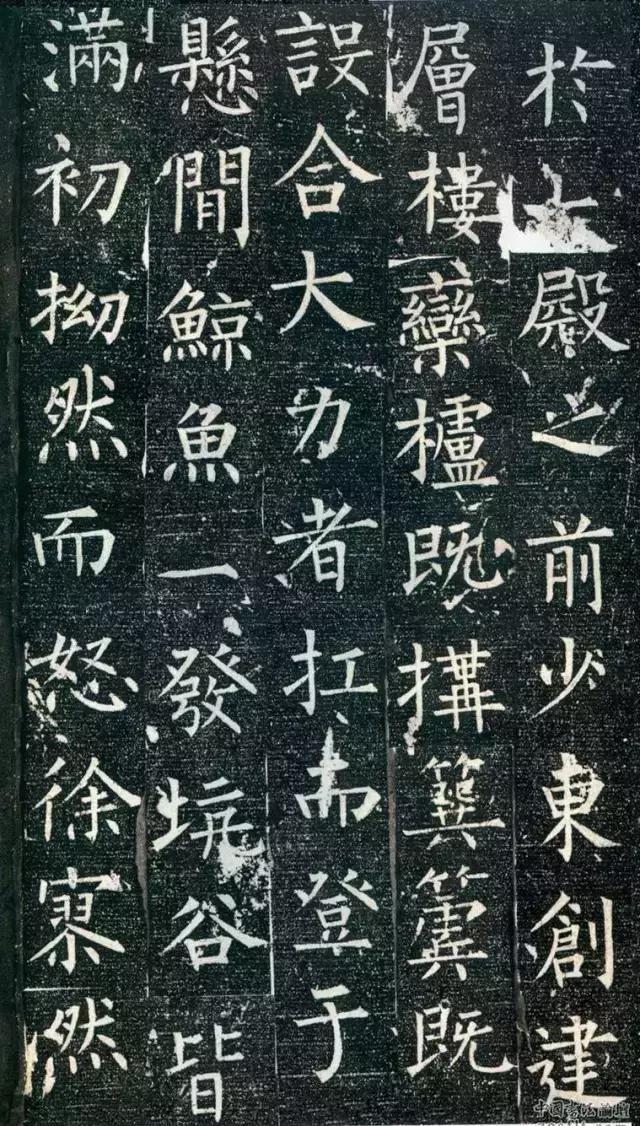 於殿之前少東創建
層樓欒櫨既搆簨簴既
設合大力者扛而登于
懸間鯨魚一發坑谷皆
滿初拗然而怒徐寥然
中国書法論壇